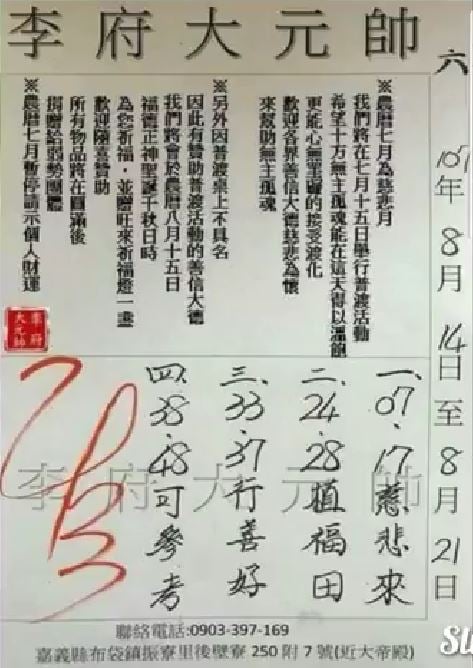 李府大元帥
六
107年8月14日至8月21日
※農曆七月為慈悲月
我們將在七月十五日舉行普渡活動
希望十方無主孤魂能在這天得以溫飽
更能心無罣礙的接受渡化
歡迎各界善信大德慈悲為懷
來幫助無主孤魂
※另外因普渡桌上不具名
因此有贊助普渡活動的善信大德
我們將會於農曆八月十五日
福德正神聖誕千秋日時
為您祈福，並贈旺來祈福燈一盞
歡迎隨喜贊助
所有物品將在圓滿後
捐贈給弱勢團體
※農曆七月暫停請示個人財運
李府
大元帥
一、07.17慈悲來
二、24.28植福田
三、33.37行善好
四、38.48可參考
李府大元帥
聯絡電話:0903-397-169
嘉義縣布袋鎮振寮里後壁寮 250 附 7 號(近大帝殿)